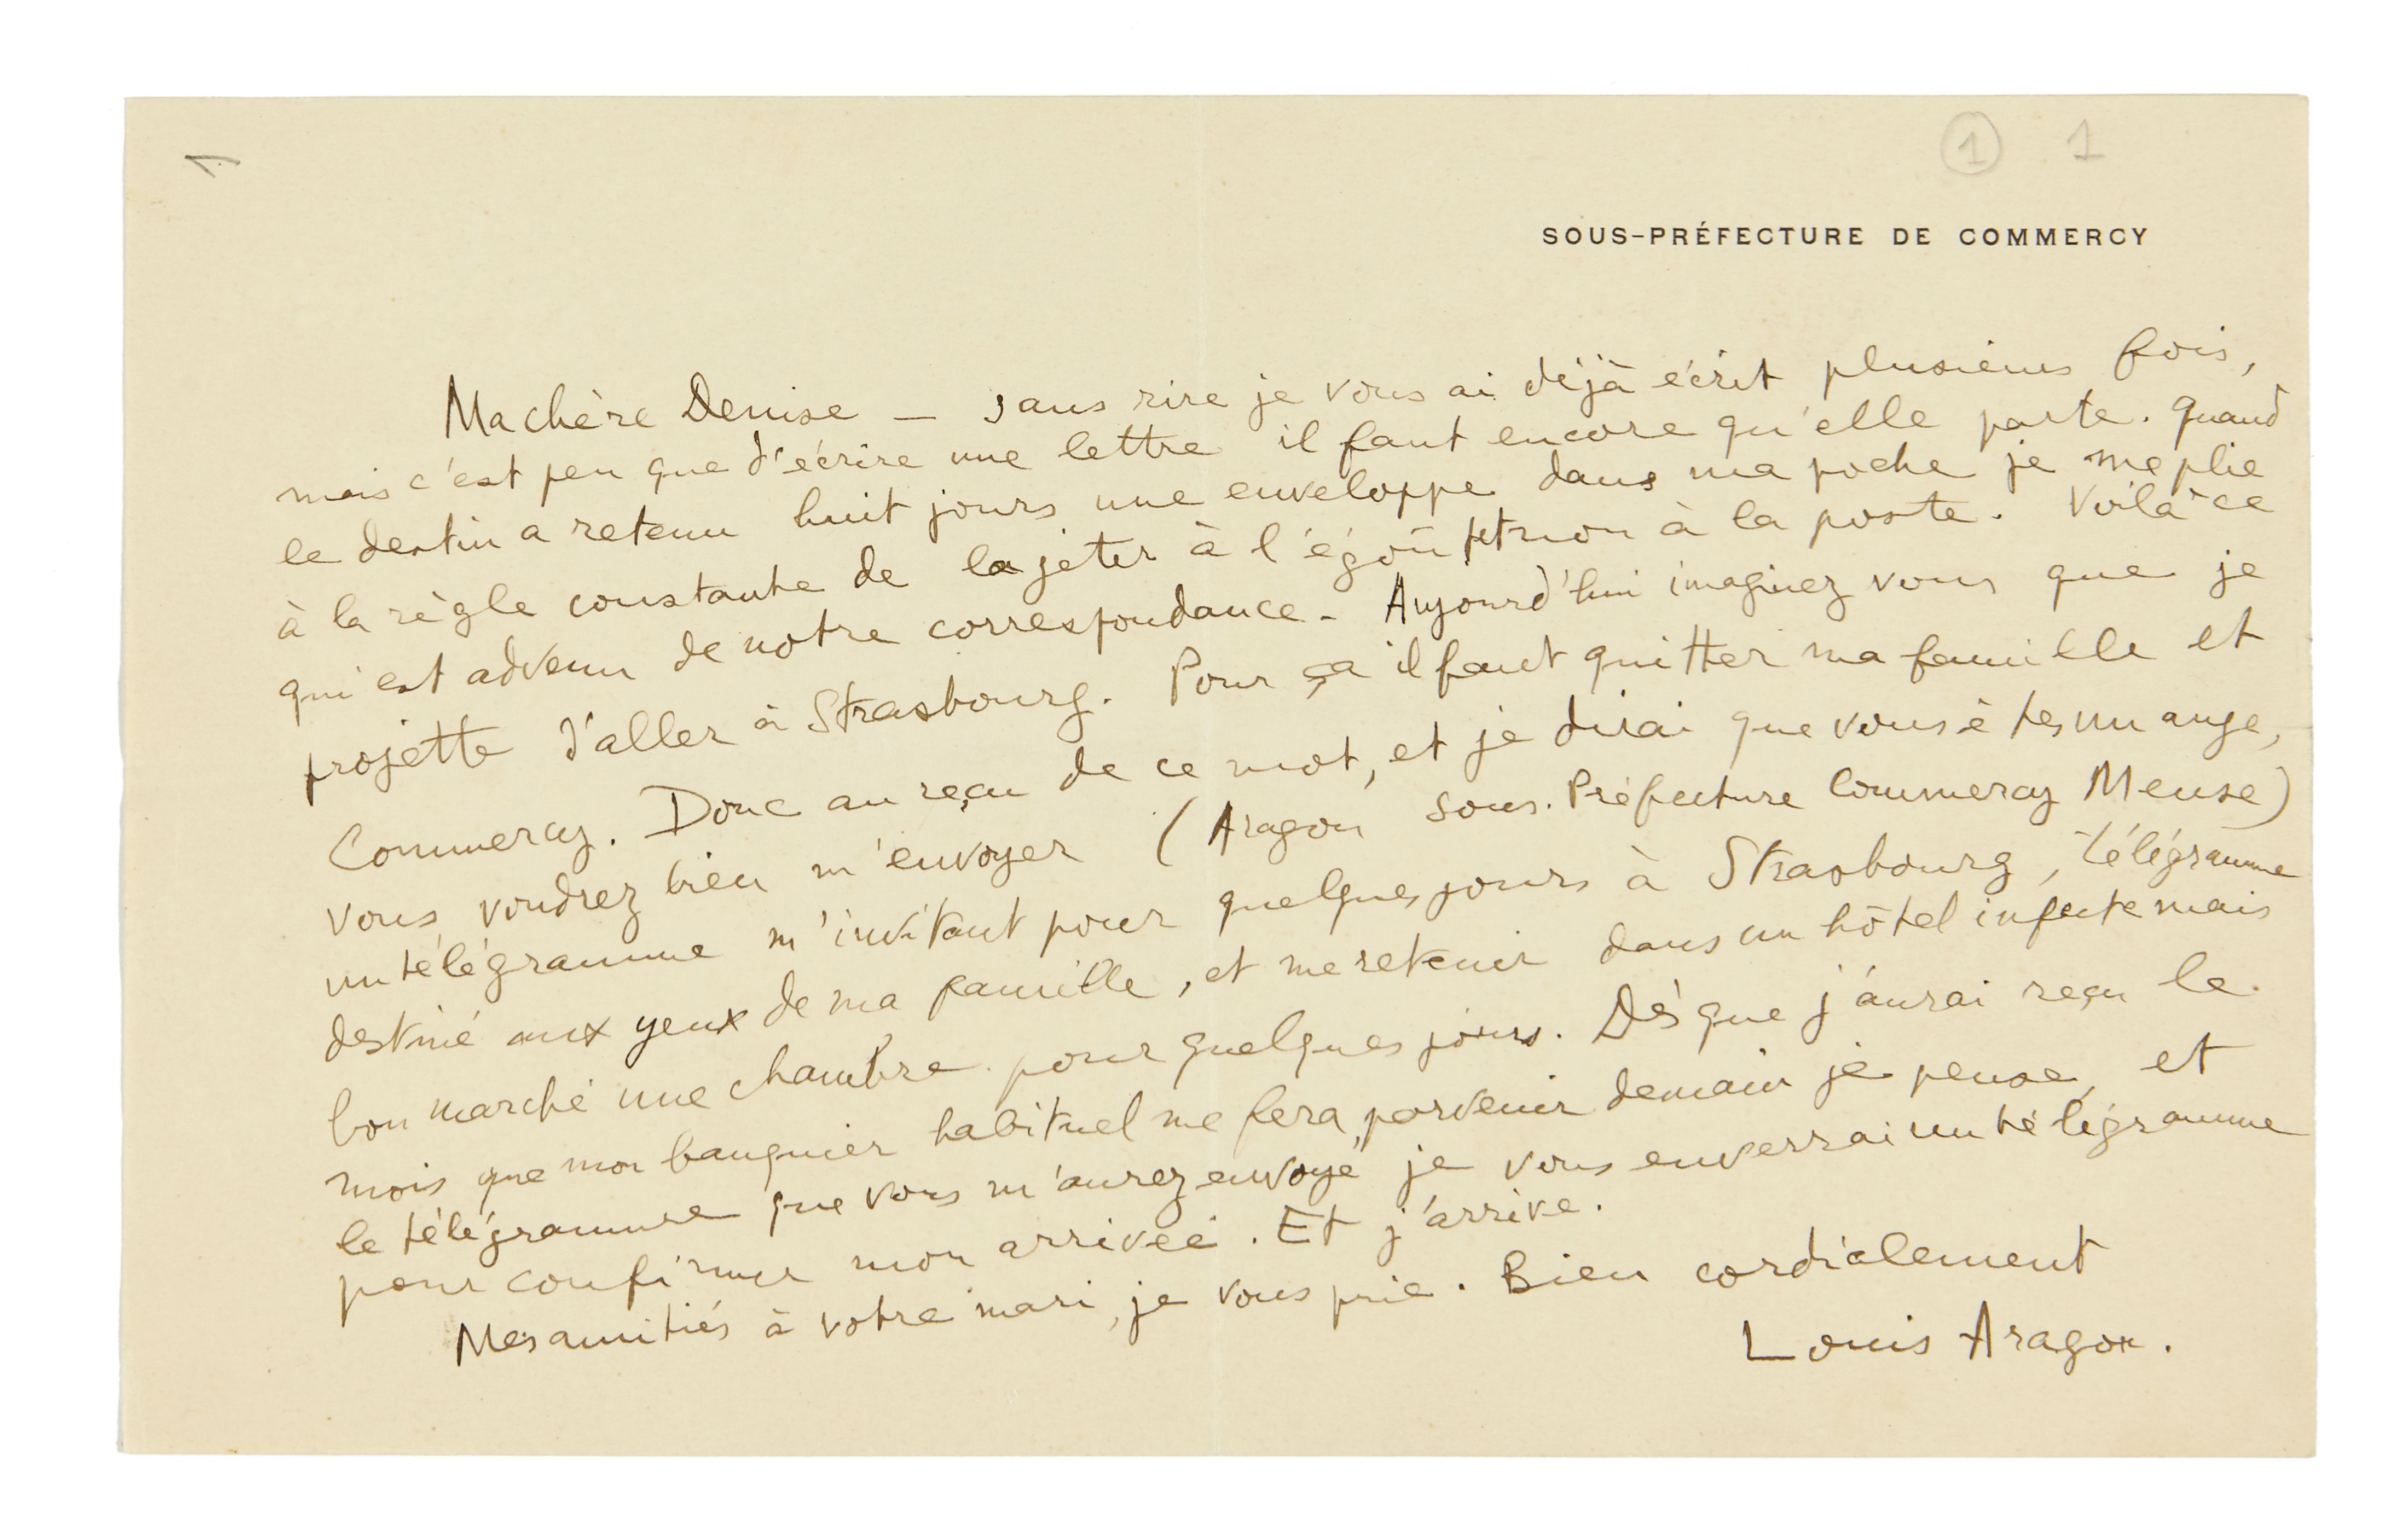 1 1
SOUS-PRÉFECTURE DE COMMERCY
Ma chère Denise — sans rire je vous ai déjà écrit plusieurs fois,
mais c'est peu que d'écrire une lettre il faut encore qu'elle parte. Quand
le destin a retenu huit jours une enveloppe dans ma poche je me plie
à la règle constante de la jeter à l'égoût et non à la poste. Voilà ce
qui est advenu de notre correspondance - Aujourd'hui imaginez vous que je
projette d'aller à Strasbourg. Pour ça il faut quitter ma famille et
Commercy. Donc au reçu de ce mot, et je dirai que vous êtes un ange,
vous voudrez bien m'envoyer (Aragon Sous-Préfecture Commercy Meuse)
un télégramme m'invitant pour quelques jours à Strasbourg, télégramme
destiné aux yeux de ma famille, et me retenir dans un hôtel infecte mais
bon marché une chambre pour quelques jours. Dès que j'aurai reçu le
mois que mon banquier habituel me fera parvenir demain je pense, et
le télégramme que vous m'aurez envoyé, je vous enverrai un télégramme
pour confirmer mon arrivée. Et j'arrive.
Mes amitiés à votre mari, je vous prie. Bien cordialement
Louis Aragon.